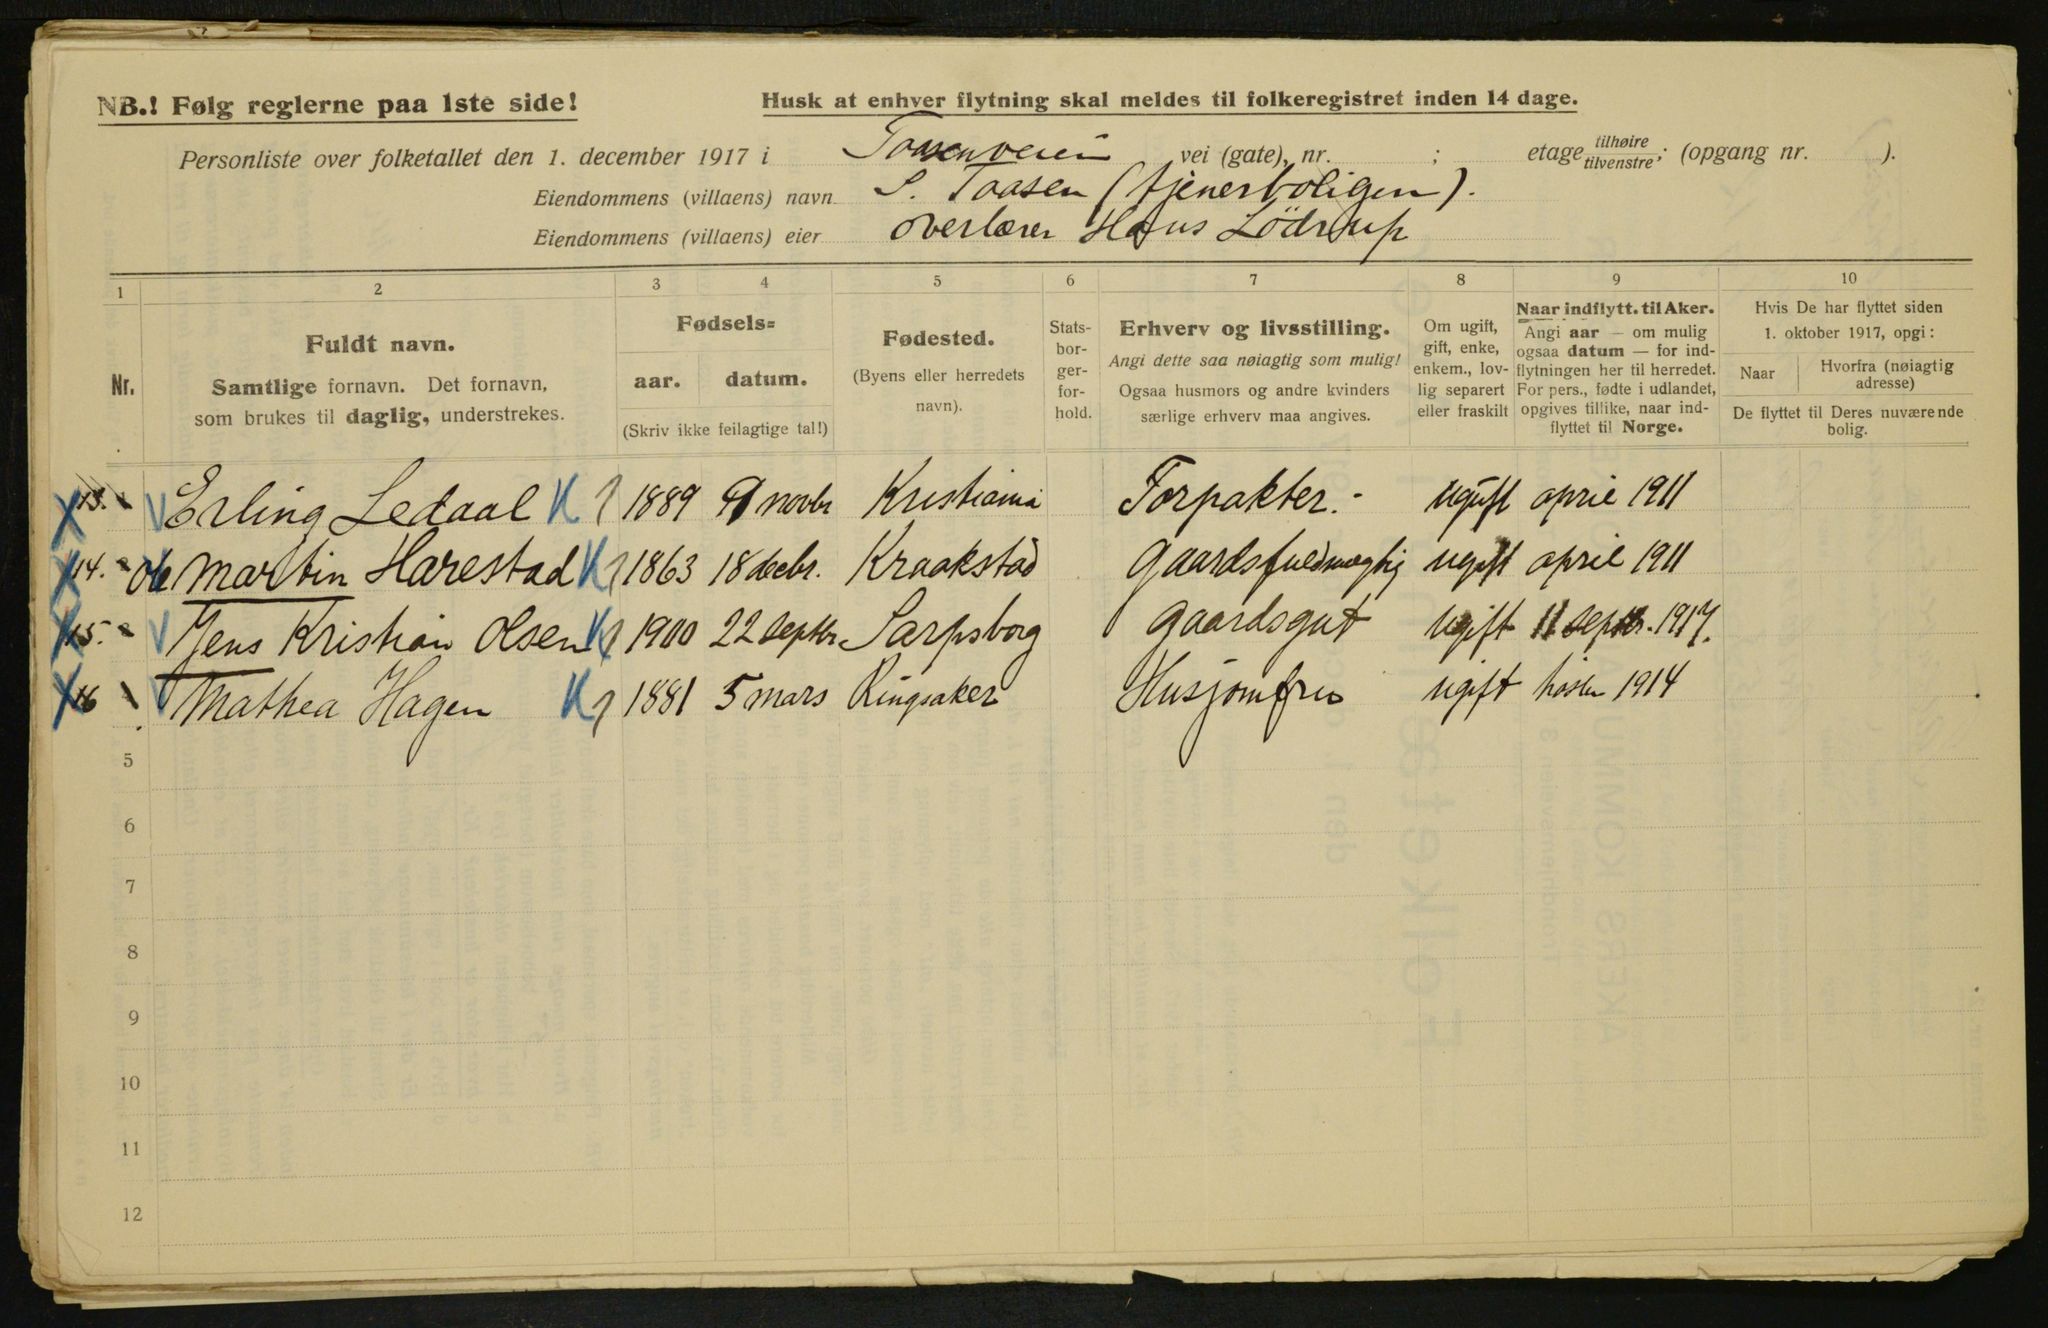 NB.! Følg reglerne paa 1ste side! Husk at enhver flytning skal meldes til folkeregistret inden 14 dage.
Personliste over folketallet den 1. december 1917 i Taasenveien vei (gate), nr. ; etage tilhøire tilvenstre; (opgang nr. ).
Eiendommens (villaens) navn S. Taasen (tjenerboligen).
Eiendommens (villaens) eier overlærer Hans Lödrup
1 2 3 4 5 6 7 8 9 10
Nr.
Fuldt navn.
Samtlige fornavn. Det fornavn,
som brukes til daglig, understrekes.
Fødsels=
aar. datum.
(Skriv ikke feilagtige tal!)
Fødested.
(Byens eller herredets
navn).
Stats-
bor-
ger-
for-
hold.
Erhverv og livsstilling.
Angi dette saa nøiagtig som mulig!
Ogsaa husmors og andre kvinders
særlige erhverv maa angives.
Om ugift,
gift, enke,
enkem., lov-
lig separert
eller fraskilt
Naar indflytt. til Aker.
Angi aar — om mulig
ogsaa datum — for ind-
flytningen her til herredet.
For pers., fødte i udlandet,
opgives tillike, naar ind-
flyttet til Norge.
Hvis De har flyttet siden
1. oktober 1917, opgi:
Naar
Hvorfra (nøiagtig
adresse)
De flyttet til Deres nuværende
bolig.
13. Erling Ledaal K 1889 9 novbr Kristiania Forpakter. ugift april 1911
14. Ole Martin Harestad K 1863 18 decbr. Kraakstad Gaardsfuldmægtig ugift april 1911
15. Jens Kristian Olsen K 1900 22 septbr Sarpsborg Gaardsgut ugift 11 septbr. 1917.
16 Mathea Hagen K 1881 5 mars Ringsaker Husjomfru ugift høsten 1914
5
6
7
8
9
10
11
12